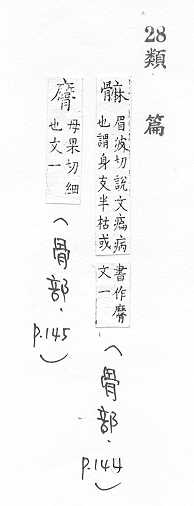 28 類篇
䯢 眉波切說文㾫病
也謂身支半枯或
書作髍
文一
(骨部.
p.144)
髍 母果切細
也文一
(骨部.
p.145)